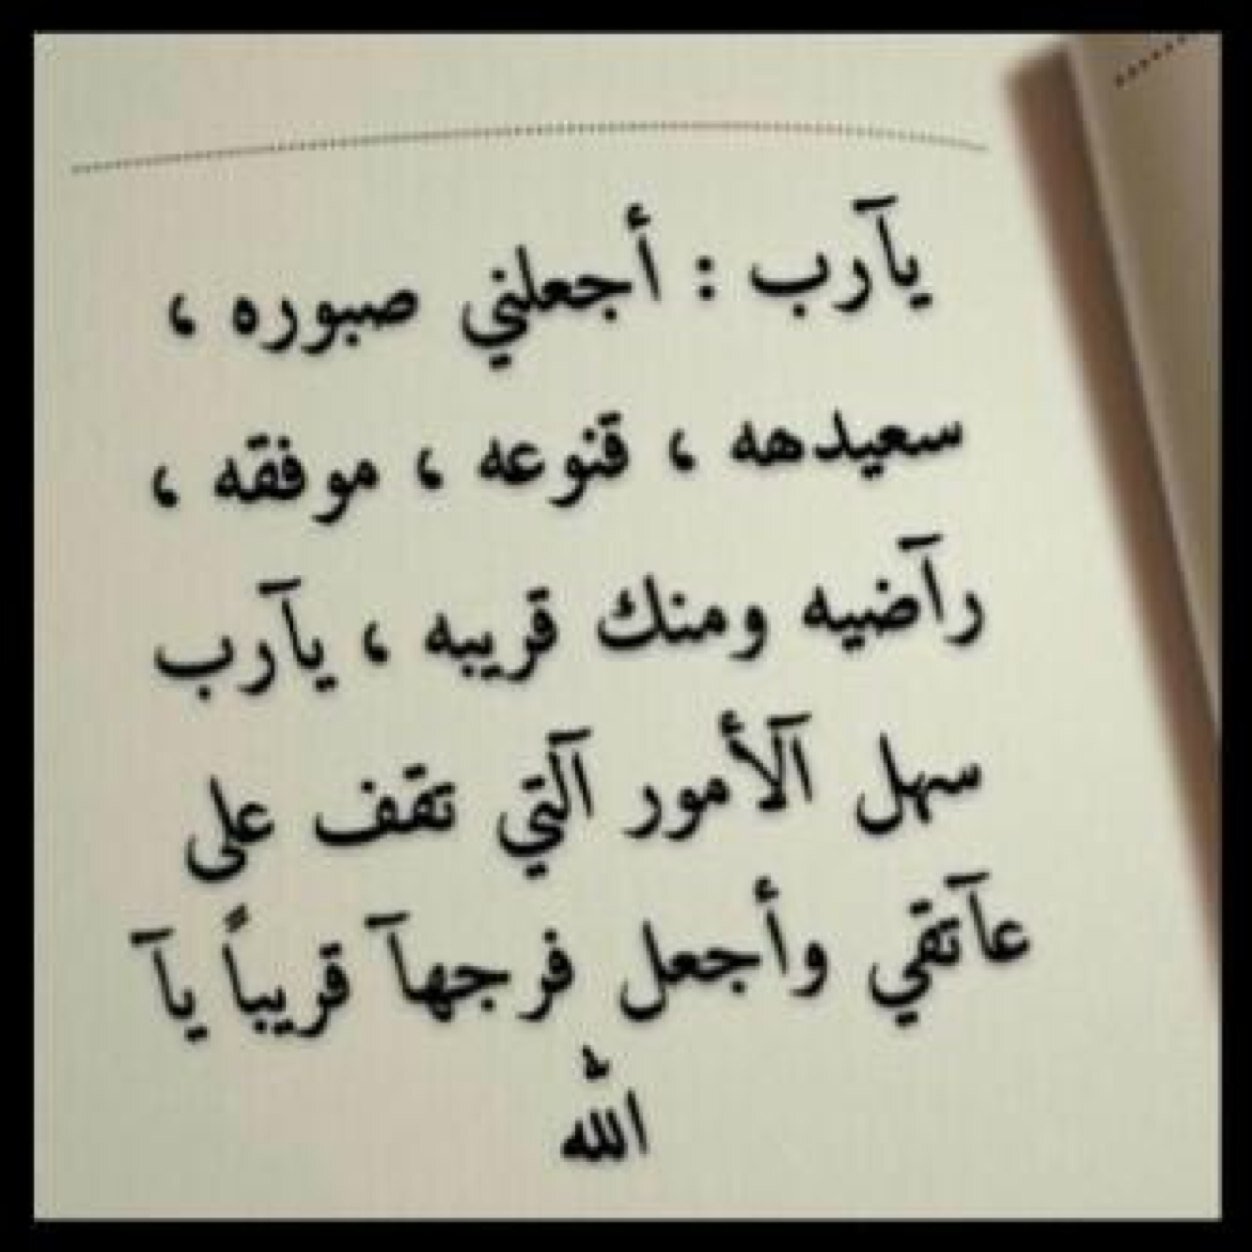 يآرب : أجعلني صبوره ،
سعيدهه ، قنوعه ، موفقه ،
رآضيه ومنك قريبه ، يآرب
سهل آلأمور آلتي تقف على
عآتقي وأجعل فرجهآ قريباً يآ
الله